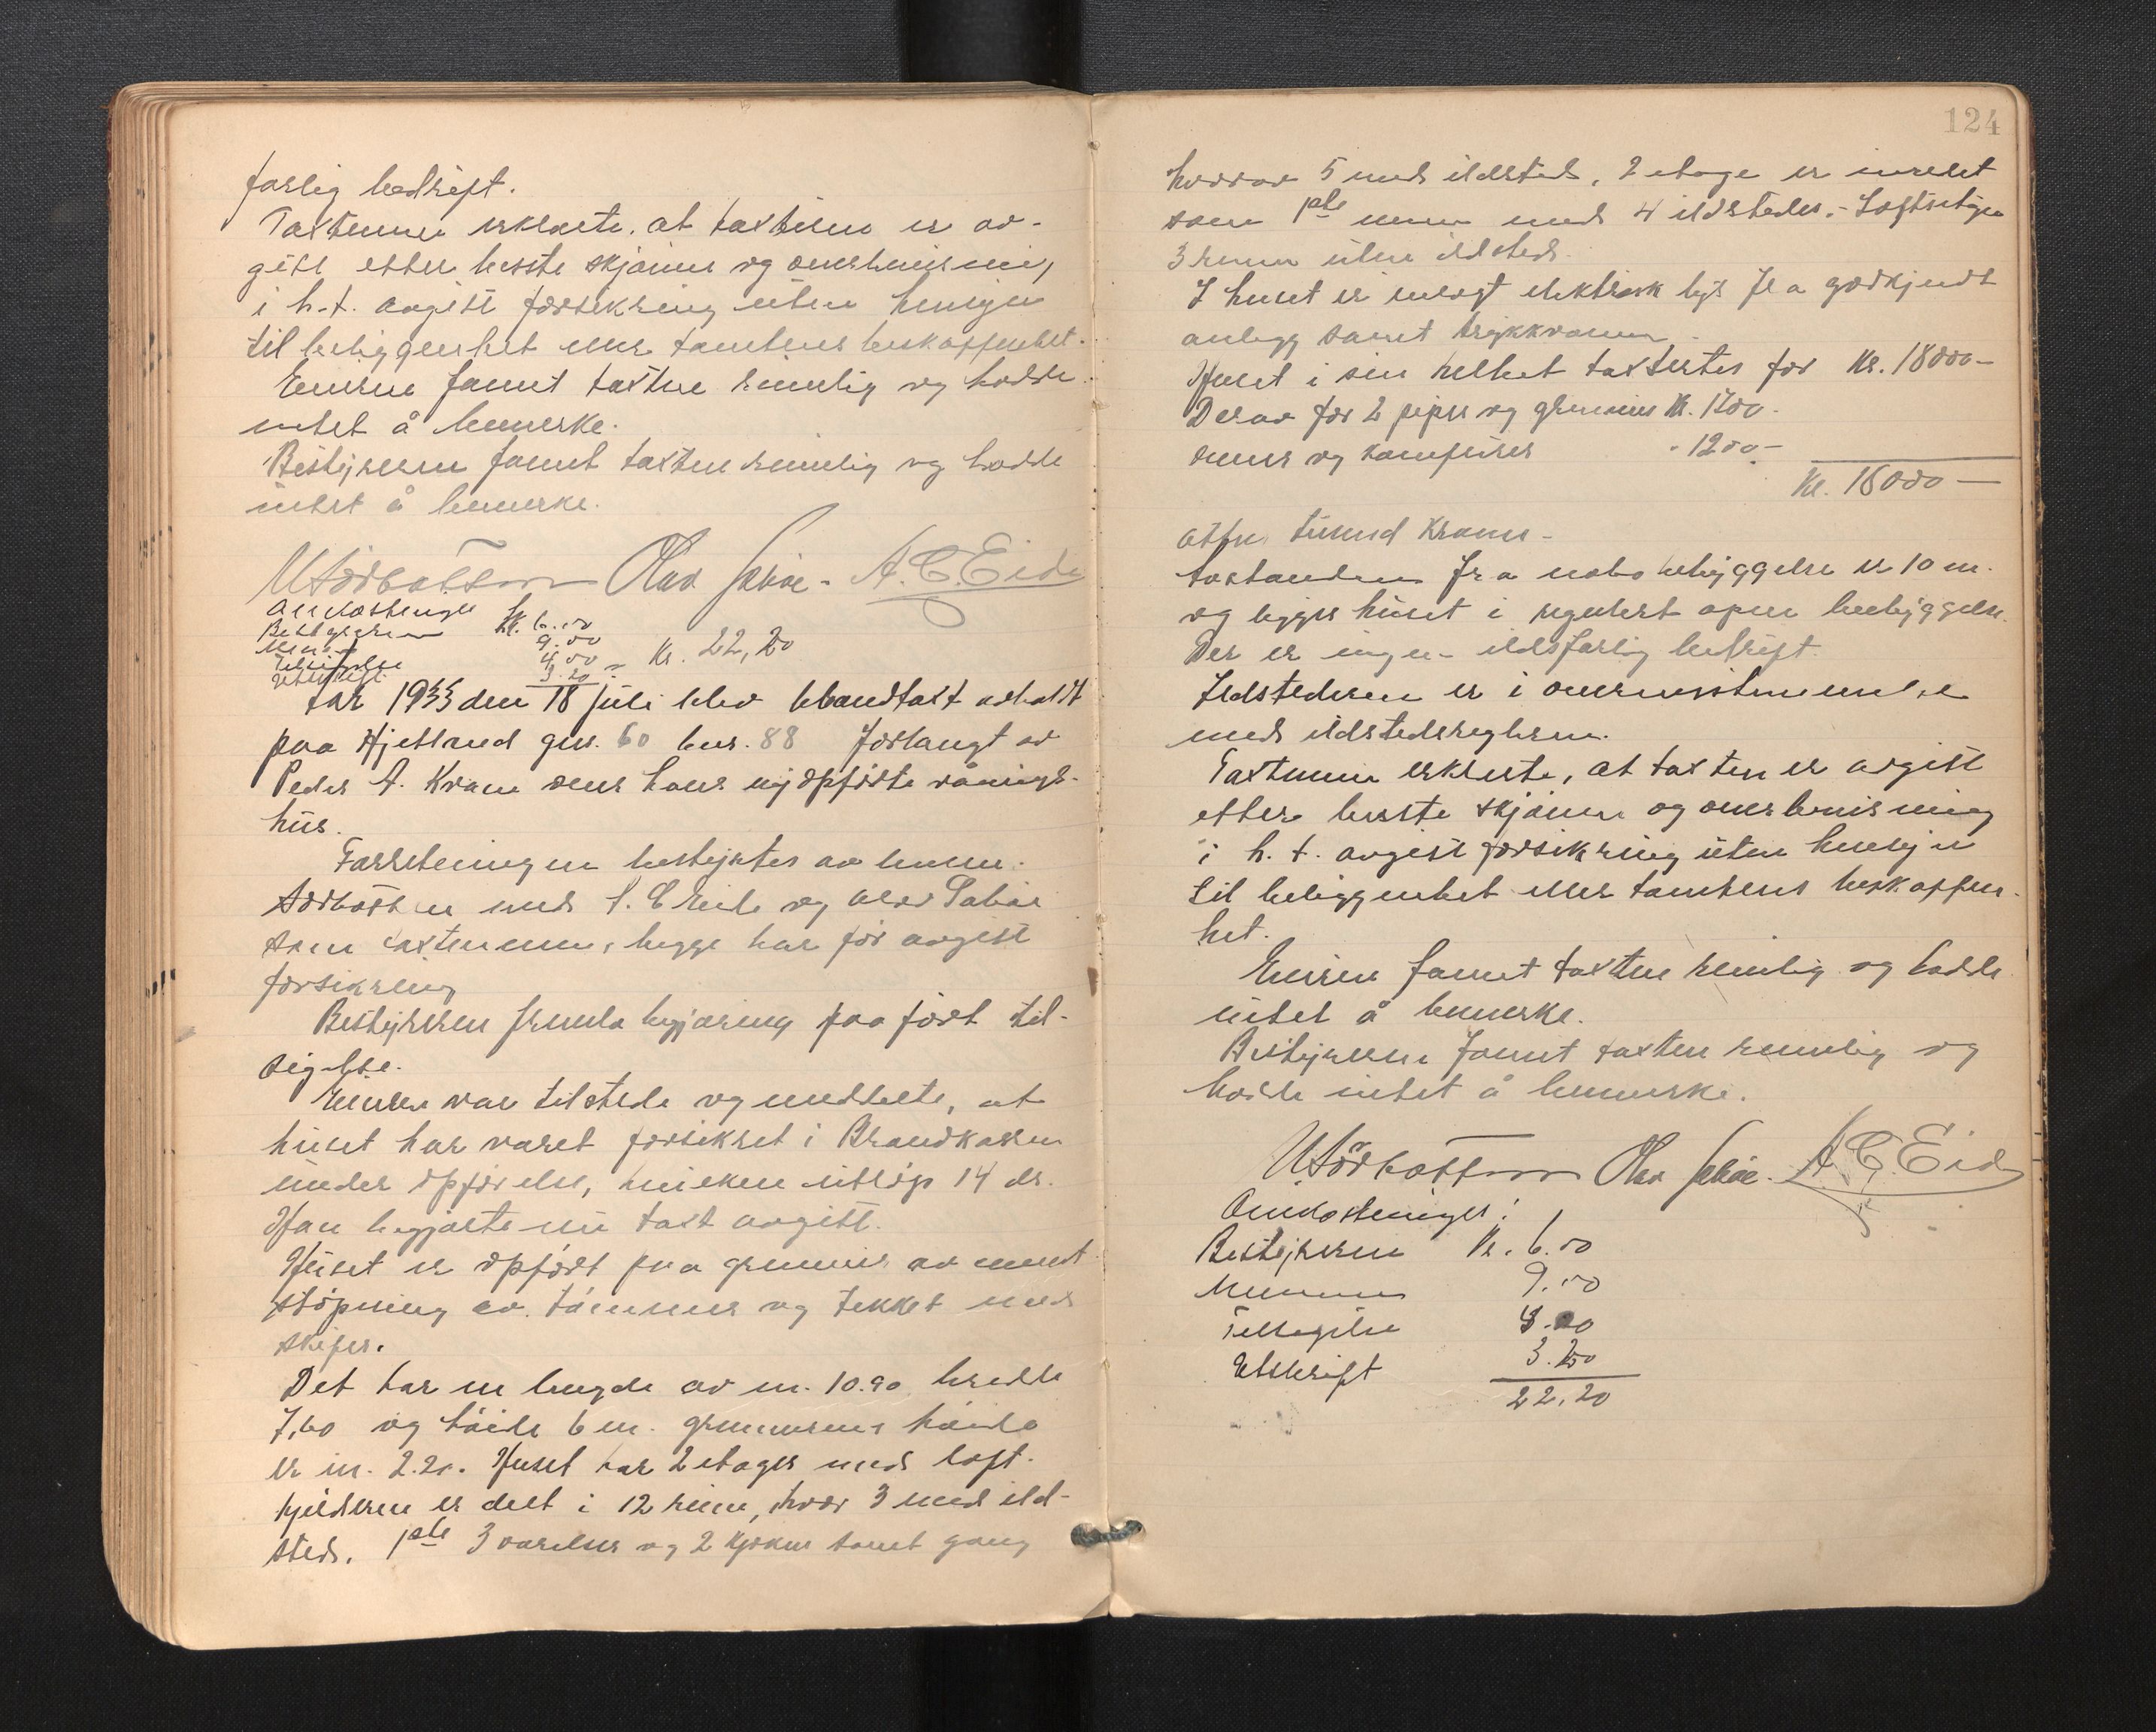 farlig bedrift.
Taxtmenn erklærte, at taxten er av-
gitt etter beste skjønn og overbevisning,
i h.t. avgitt forsikring uten hensyn
til beliggenhet eller tomtens beskaffenhet.
Eieren fannt taxten rimelig og hadde
intet å bemerke.
Bestyreren fannt taxten rimelig og hadde
intet å bemerke.
Olav A.C. Eide
Omkostninger
Bestyreren kr. 6.00
Menn 9.00
Tilsigelse 4.00 - Kr. 22,20
Utskrift 3.20
Aar 1933 den 18 juli blev brandtaxt avholdt
paa Hjellned gnr. 60 bnr. 88 forlangt av
Peder A. Kvam over hans nyopførte vånings-
hus.
Forretningen bestyrtes av lensm.
med A. C Eide og Olav
som taxtmenn, begge har før avgitt
forsikring
Bestyreren fremla begjæring paaført til-
sigelse.
Eieren var tilstede og meddelte, at
huset har været forsikret i Brandkassen
under opførelse, hvilken utløp 14 ds.
Han begjærte nu taxt avgitt.
Huset er opført paa grunnmur av cement
støpning av tømmer og tekket med
skifer.
Det har en lengde av m. 10.90 bredde
7,60 og høide 6 m. grunnmurens høide
er m. 2.20. Huset har 2 etager med loft.
Kjelderen er delt i 12 rum, hvor 3 med ild-
sted. 1ste 3 værelser og 2 kjøken samt gang
124
hvorav 5 med ildsted, 2 etage er inredet
som 1ste med 4 ildsteder. - Loftsetagen
3 rum uten ildsted.
I huset er innlagt elektrisk lys fra godkjendt
anlegg samt trykkvann.
Huset i sin helhet taxertes for Kr. 18000-
Derav for 2 piper og grunnmur Kr. 1700.
ovner og komfurer - 1200-
Kr. 18000 -
atten tusund Kroner -
Avstanden fra nabobebyggelse er 10 m.
og ligger huset i regulert åpen bebyggelse.
Der er ingen ildsfarlig bedrift.
Ildstederne er i overensstemmelse
med ildstedsreglerne.
Taxtmenn erklærte, at taxten er avgitt
etter beste skjønn og overbevisning
i h.t. avgitt forsikring uten hensyn
til beliggenhet eller tomtens beskaffen-
het.
Eieren fannt taxten rimelig og hadde
intet å bemerke.
Bestyreren fannt taxten rimelig og
hadde intet å bemerke.
Olav A.C. Eide
Omkostninger:
Bestyreren Kr. 6.00
Mennene 9.00
Tilsigelse
Utskrift
22.20